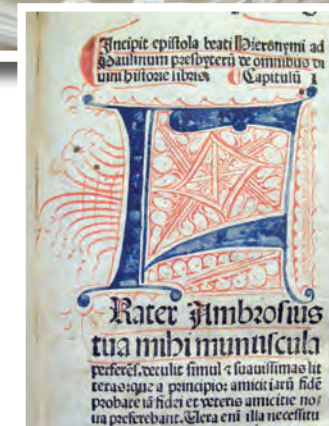 Incipit epistola beati Hieronymi ad
Paulinum presbyterū de omnibus di
uini historie libris Capitulū I
F
Rater Ambrosius
tua mihi munuscula
perferēs. detulit simul ⁊ suauissimas lit
teras: que a principio: amicitiarū fidē
probate iā fidei et veteris amicitie no/
ua preferebant. Uera eni illa necessitu